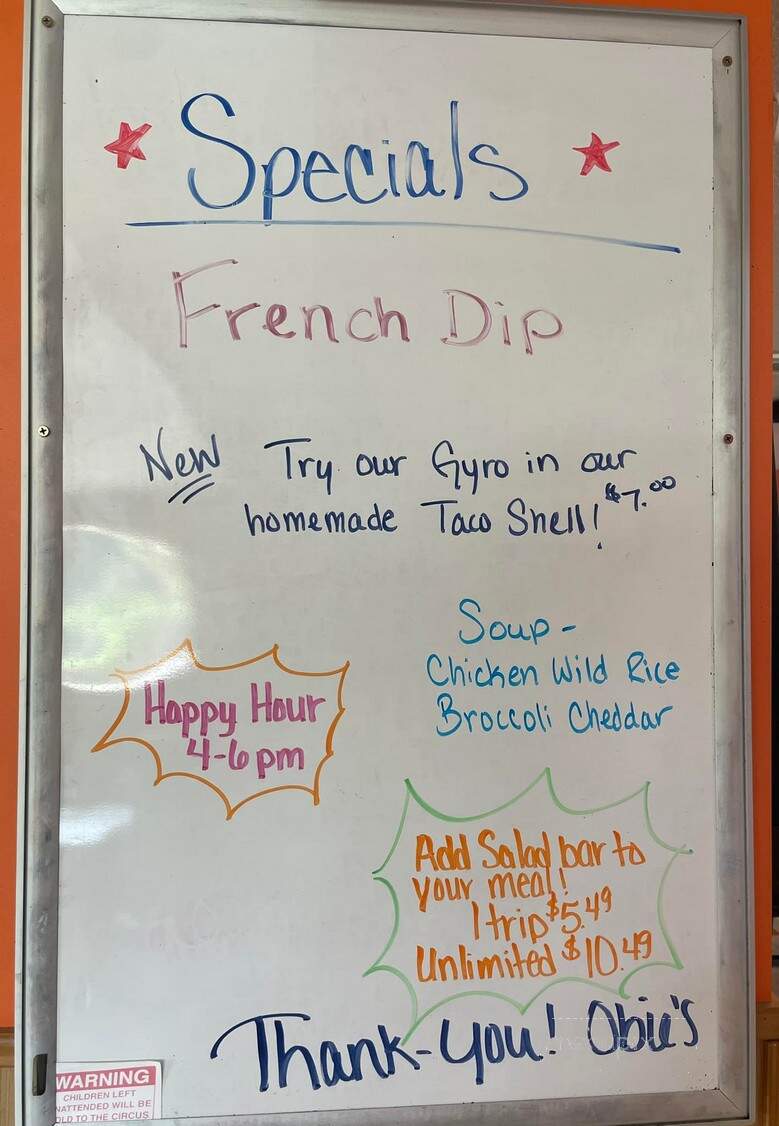 Specials
French Dip
New Try our Gyro in our
homemade Taco Shell! $7.00
Soup -
Chicken Wild Rice
Broccoli Cheddar
Happy Hour
4-6pm
Add Salad bar to
your meal!
1 trip $5.49
Unlimited $10.49
Thank-You! Obie's
WARNING
CHILDREN LEFT
NATTENDED WILL BE
OLD TO THE CIRCUS